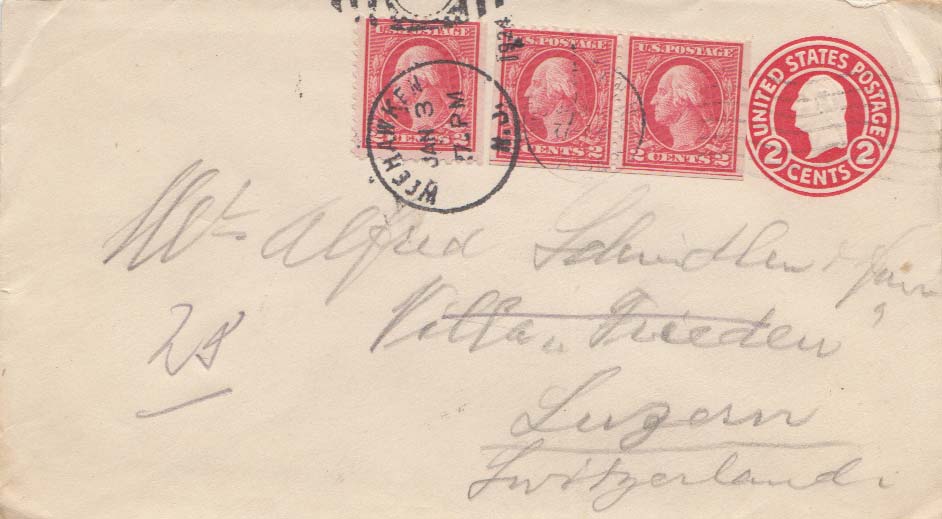 U.S. POSTAGE
2 CENTS 2
U.S. POSTAGE
CENTS 2
U.S. POSTAGE
2 CENTS 2
UNITED STATES POSTAGE
2 CENTS 2
WEEHAWKEN N.J.
JAN 3
7 PM
Alfred Schindler &
Villa Frieden
Luzern
Switzerland